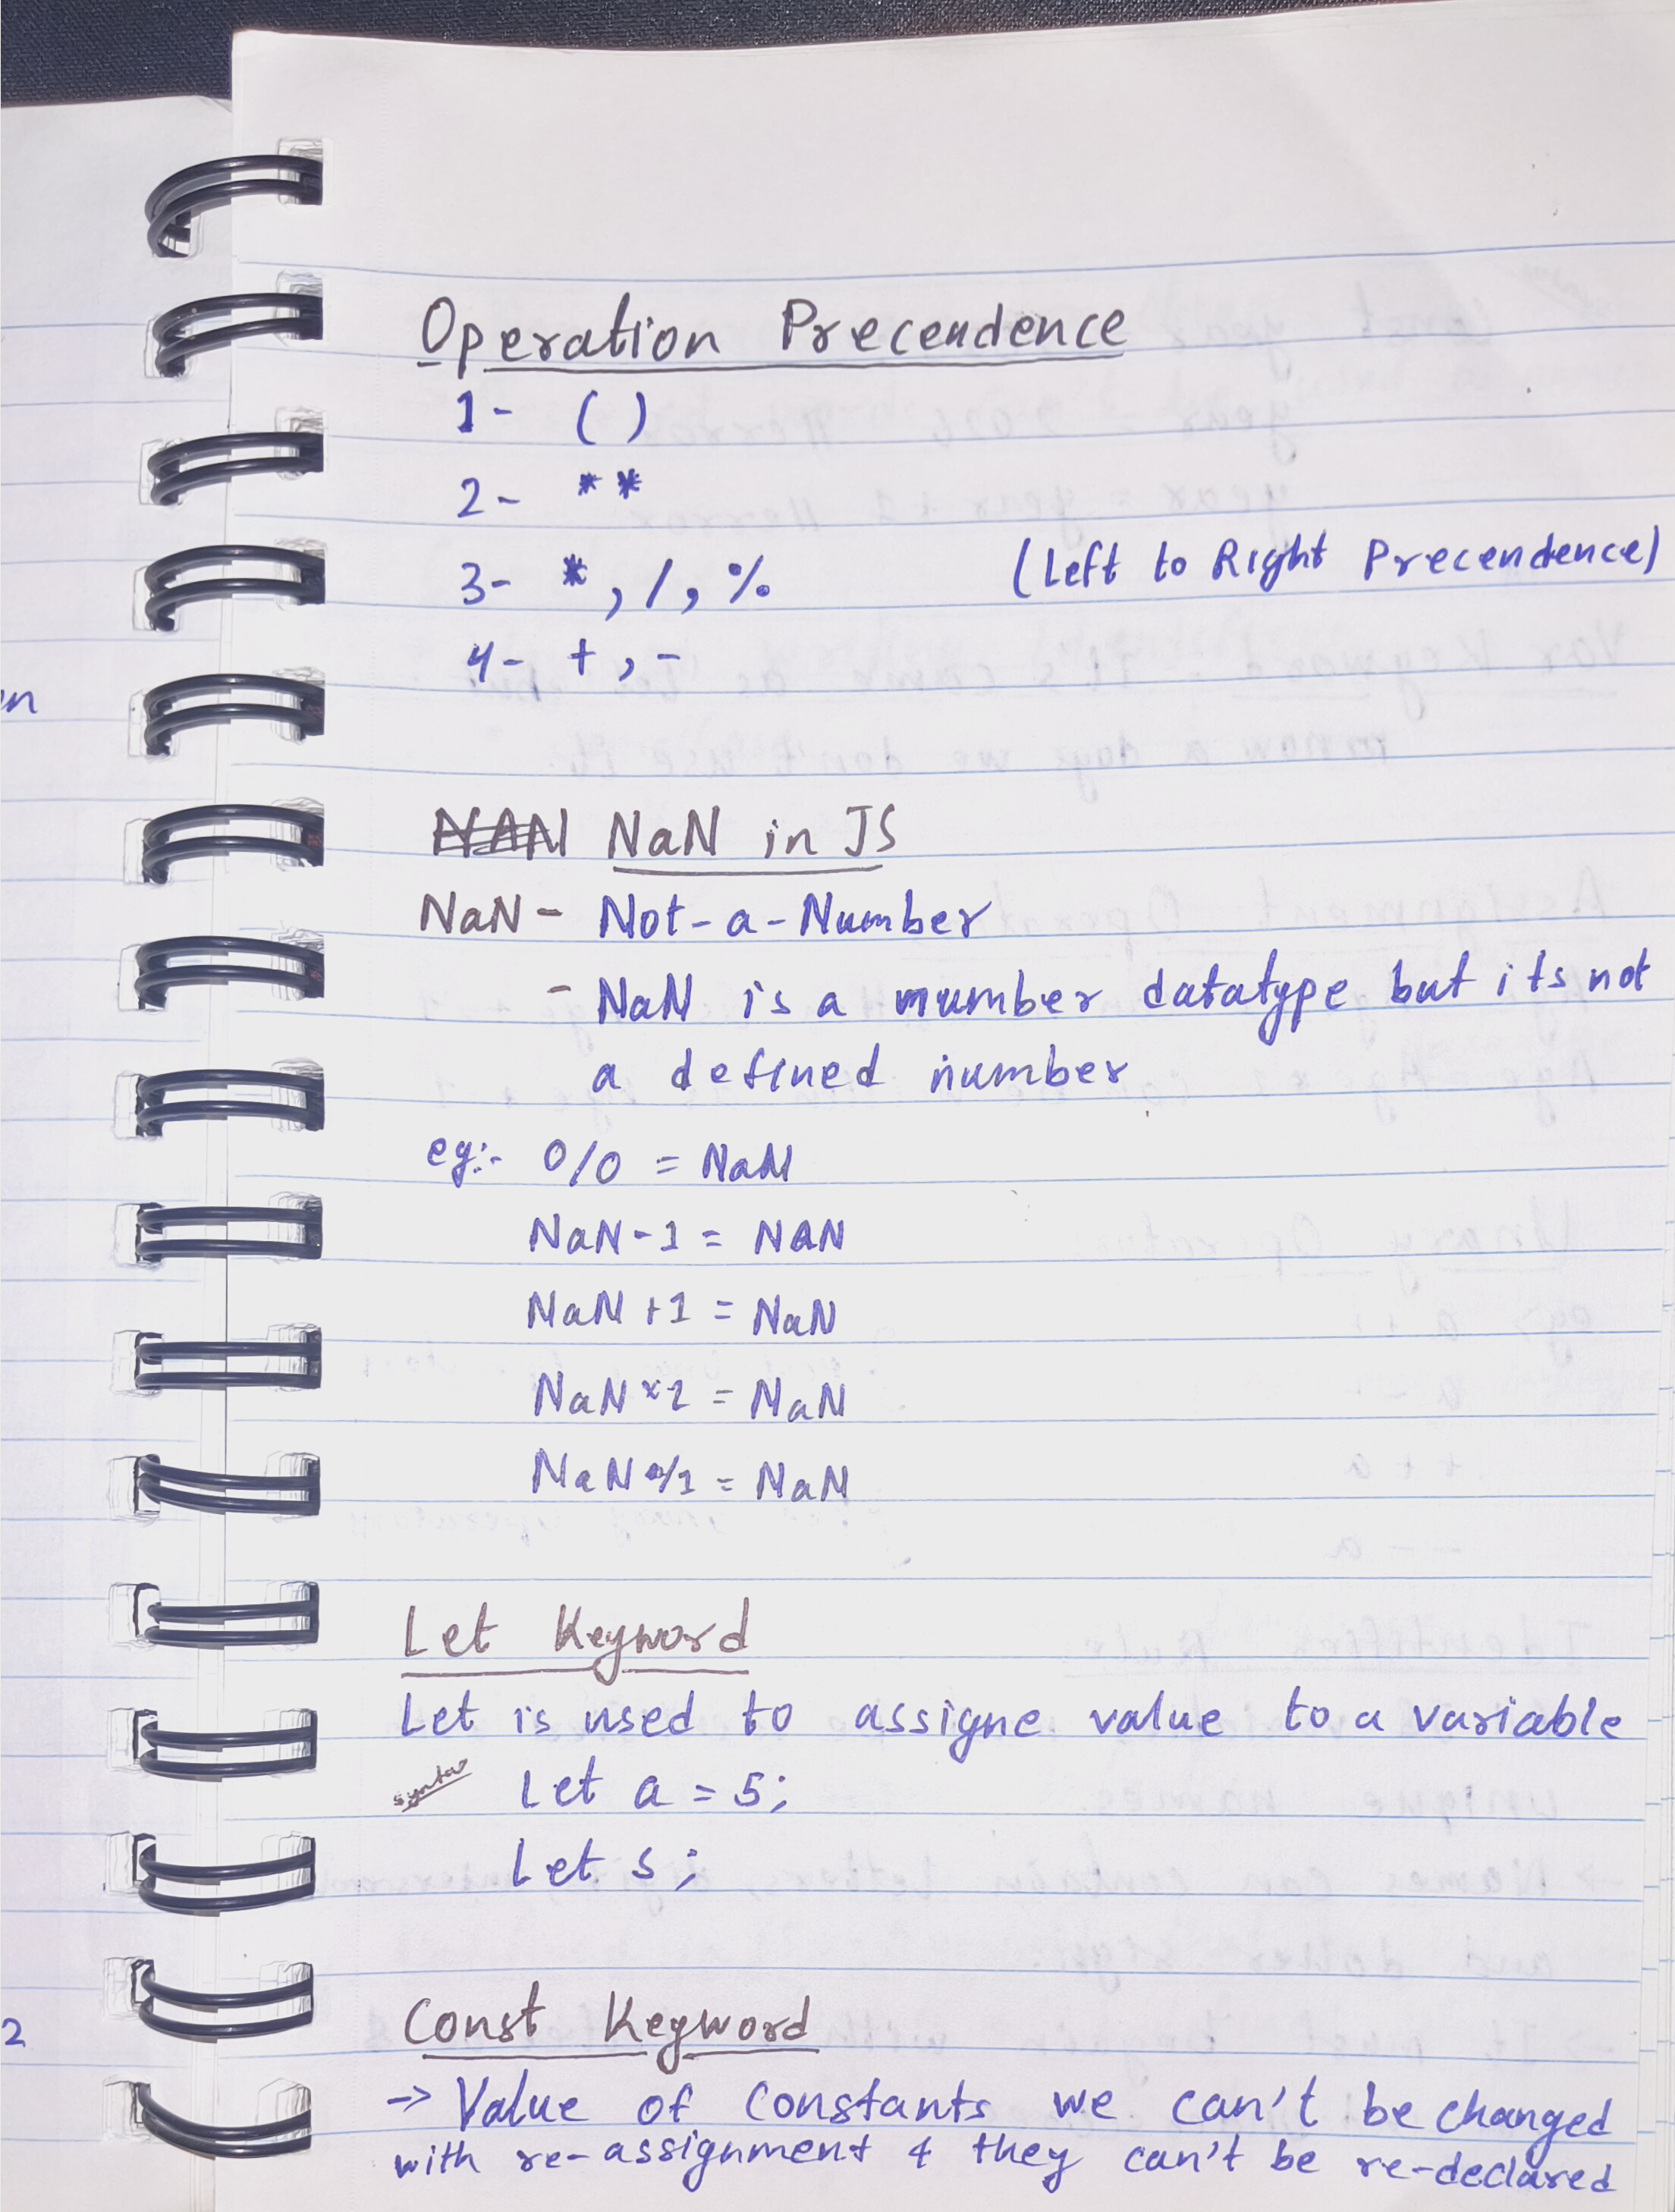 Operation Precendence
1- ( )
2- **
3- *, /, % (Left to Right Precendence)
4- +, -
NAN NaN in JS
NaN - Not-a-Number
- NaN is a mumber datatype but its not
a defined number
eg:- 0/0 = NaN
NaN-1 = NAN
NaN+1 = NaN
NaN = NaN
NaN = NaN
Let Keyword
Let is used to assigne value to a variable
syntax Let a = 5;
Let s;
Const Keyword
-> Value of constants we can't be changed
with re-assignment & they can't be re-declared
in
2